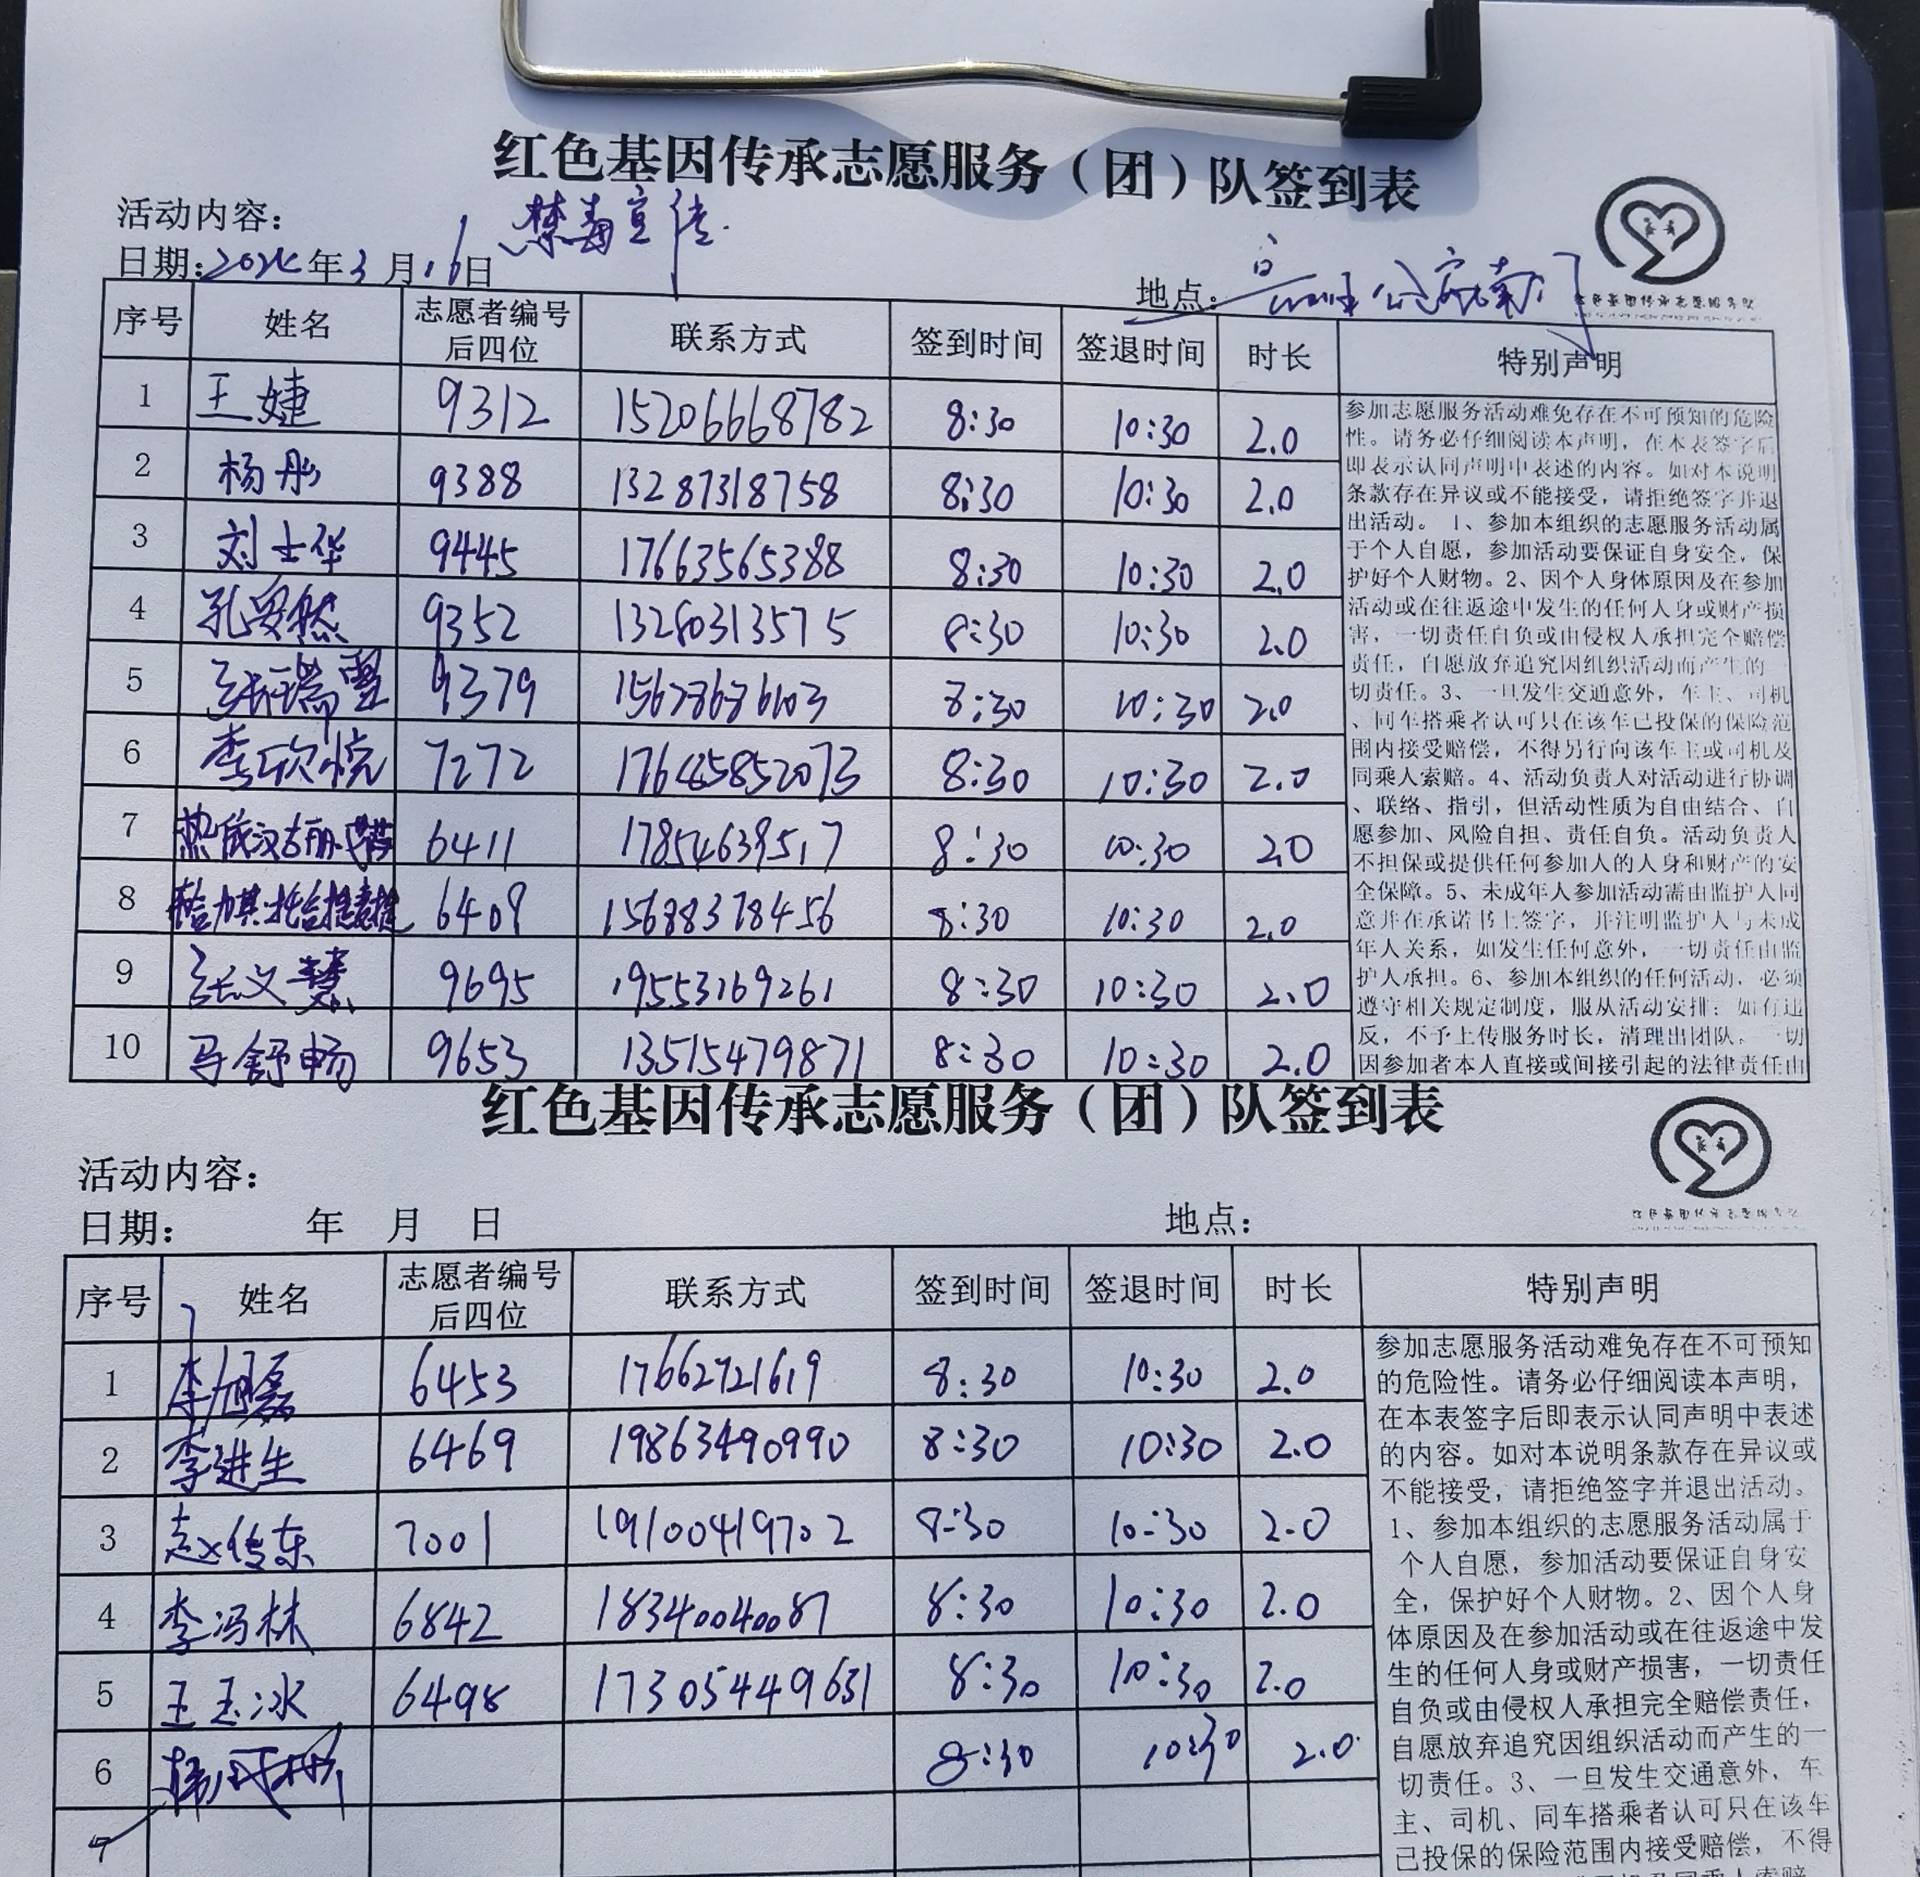 红色基因传承志愿服务（团）队签到表
活动内容：禁毒宣传
日期：2024年3月16日 地点：
序号 姓名 志愿者编号后四位 联系方式 签到时间 签退时间 时长 特别声明
1 王婕 9312 15206668782 8:30 10:30 2.0
2 杨彤 9388 13287318758 8:30 10:30 2.0
3 刘士华 9445 17663565388 8:30 10:30 2.0
4 孔安然 9352 13280313575 8:30 10:30 2.0
5 张瑞雪 9379 8:30 10:30 2.0
6 李欣悦 7272 17645852073 8:30 10:30 2.0
7 6411 17854639517 8:30 10:30 2.0
8 6409 15688378456 8:30 10:30 2.0
9 张义慧 9695 19553169261 8:30 10:30 2.0
10 马舒畅 9653 13515479871 8:30 10:30 2.0
参加志愿服务活动难免存在不可预知的危险
性。请务必仔细阅读本声明，在本表签字后
即表示认同声明中表述的内容。如对本说明
条款存在异议或不能接受，请拒绝签字并退
出活动。 1、参加本组织的志愿服务活动属
于个人自愿，参加活动要保证自身安全，保
护好个人财物。2、因个人身体原因及在参加
活动或在往返途中发生的任何人身或财产损
害，一切责任自负或由侵权人承担完全赔偿
责任，自愿放弃追究因组织活动而产生的一
切责任。3、一旦发生交通意外，车主、司机
、同车搭乘者认可只在该车已投保的保险范
围内接受赔偿，不得另行向该车主或司机及
同乘人索赔。4、活动负责人对活动进行协调
、联络、指引，但活动性质为自由结合、自
愿参加、风险自担、责任自负。活动负责人
不担保或提供任何参加人的人身和财产的安
全保障。5、未成年人参加活动需由监护人同
意并在承诺书上签字，并注明监护人与未成
年人关系，如发生任何意外，一切责任由监
护人承担。6、参加本组织的任何活动，必须
遵守相关规定制度，服从活动安排；如有违
反，不予上传服务时长，清理出团队。一切
因参加者本人直接或间接引起的法律责任由
红色基因传承志愿服务（团）队签到表
活动内容：
日期： 年 月 日 地点：
序号 姓名 志愿者编号后四位 联系方式 签到时间 签退时间 时长 特别声明
1 李旭磊 6453 17662721619 8:30 10:30 2.0
2 李进生 6469 19863490990 8:30 10:30 2.0
3 赵传东 7001 19100419702 8:30 10:30 2.0
4 李冯林 6842 18340040087 8:30 10:30 2.0
5 王玉冰 6498 17305449631 8:30 10:30 2.0
6 8:30 10:30 2.0
7
参加志愿服务活动难免存在不可预知
的危险性。请务必仔细阅读本声明，
在本表签字后即表示认同声明中表述
的内容。如对本说明条款存在异议或
不能接受，请拒绝签字并退出活动。
1、参加本组织的志愿服务活动属于
个人自愿，参加活动要保证自身安
全，保护好个人财物。2、因个人身
体原因及在参加活动或在往返途中发
生的任何人身或财产损害，一切责任
自负或由侵权人承担完全赔偿责任，
自愿放弃追究因组织活动而产生的一
切责任。3、一旦发生交通意外，车
主、司机、同车搭乘者认可只在该车
已投保的保险范围内接受赔偿，不得